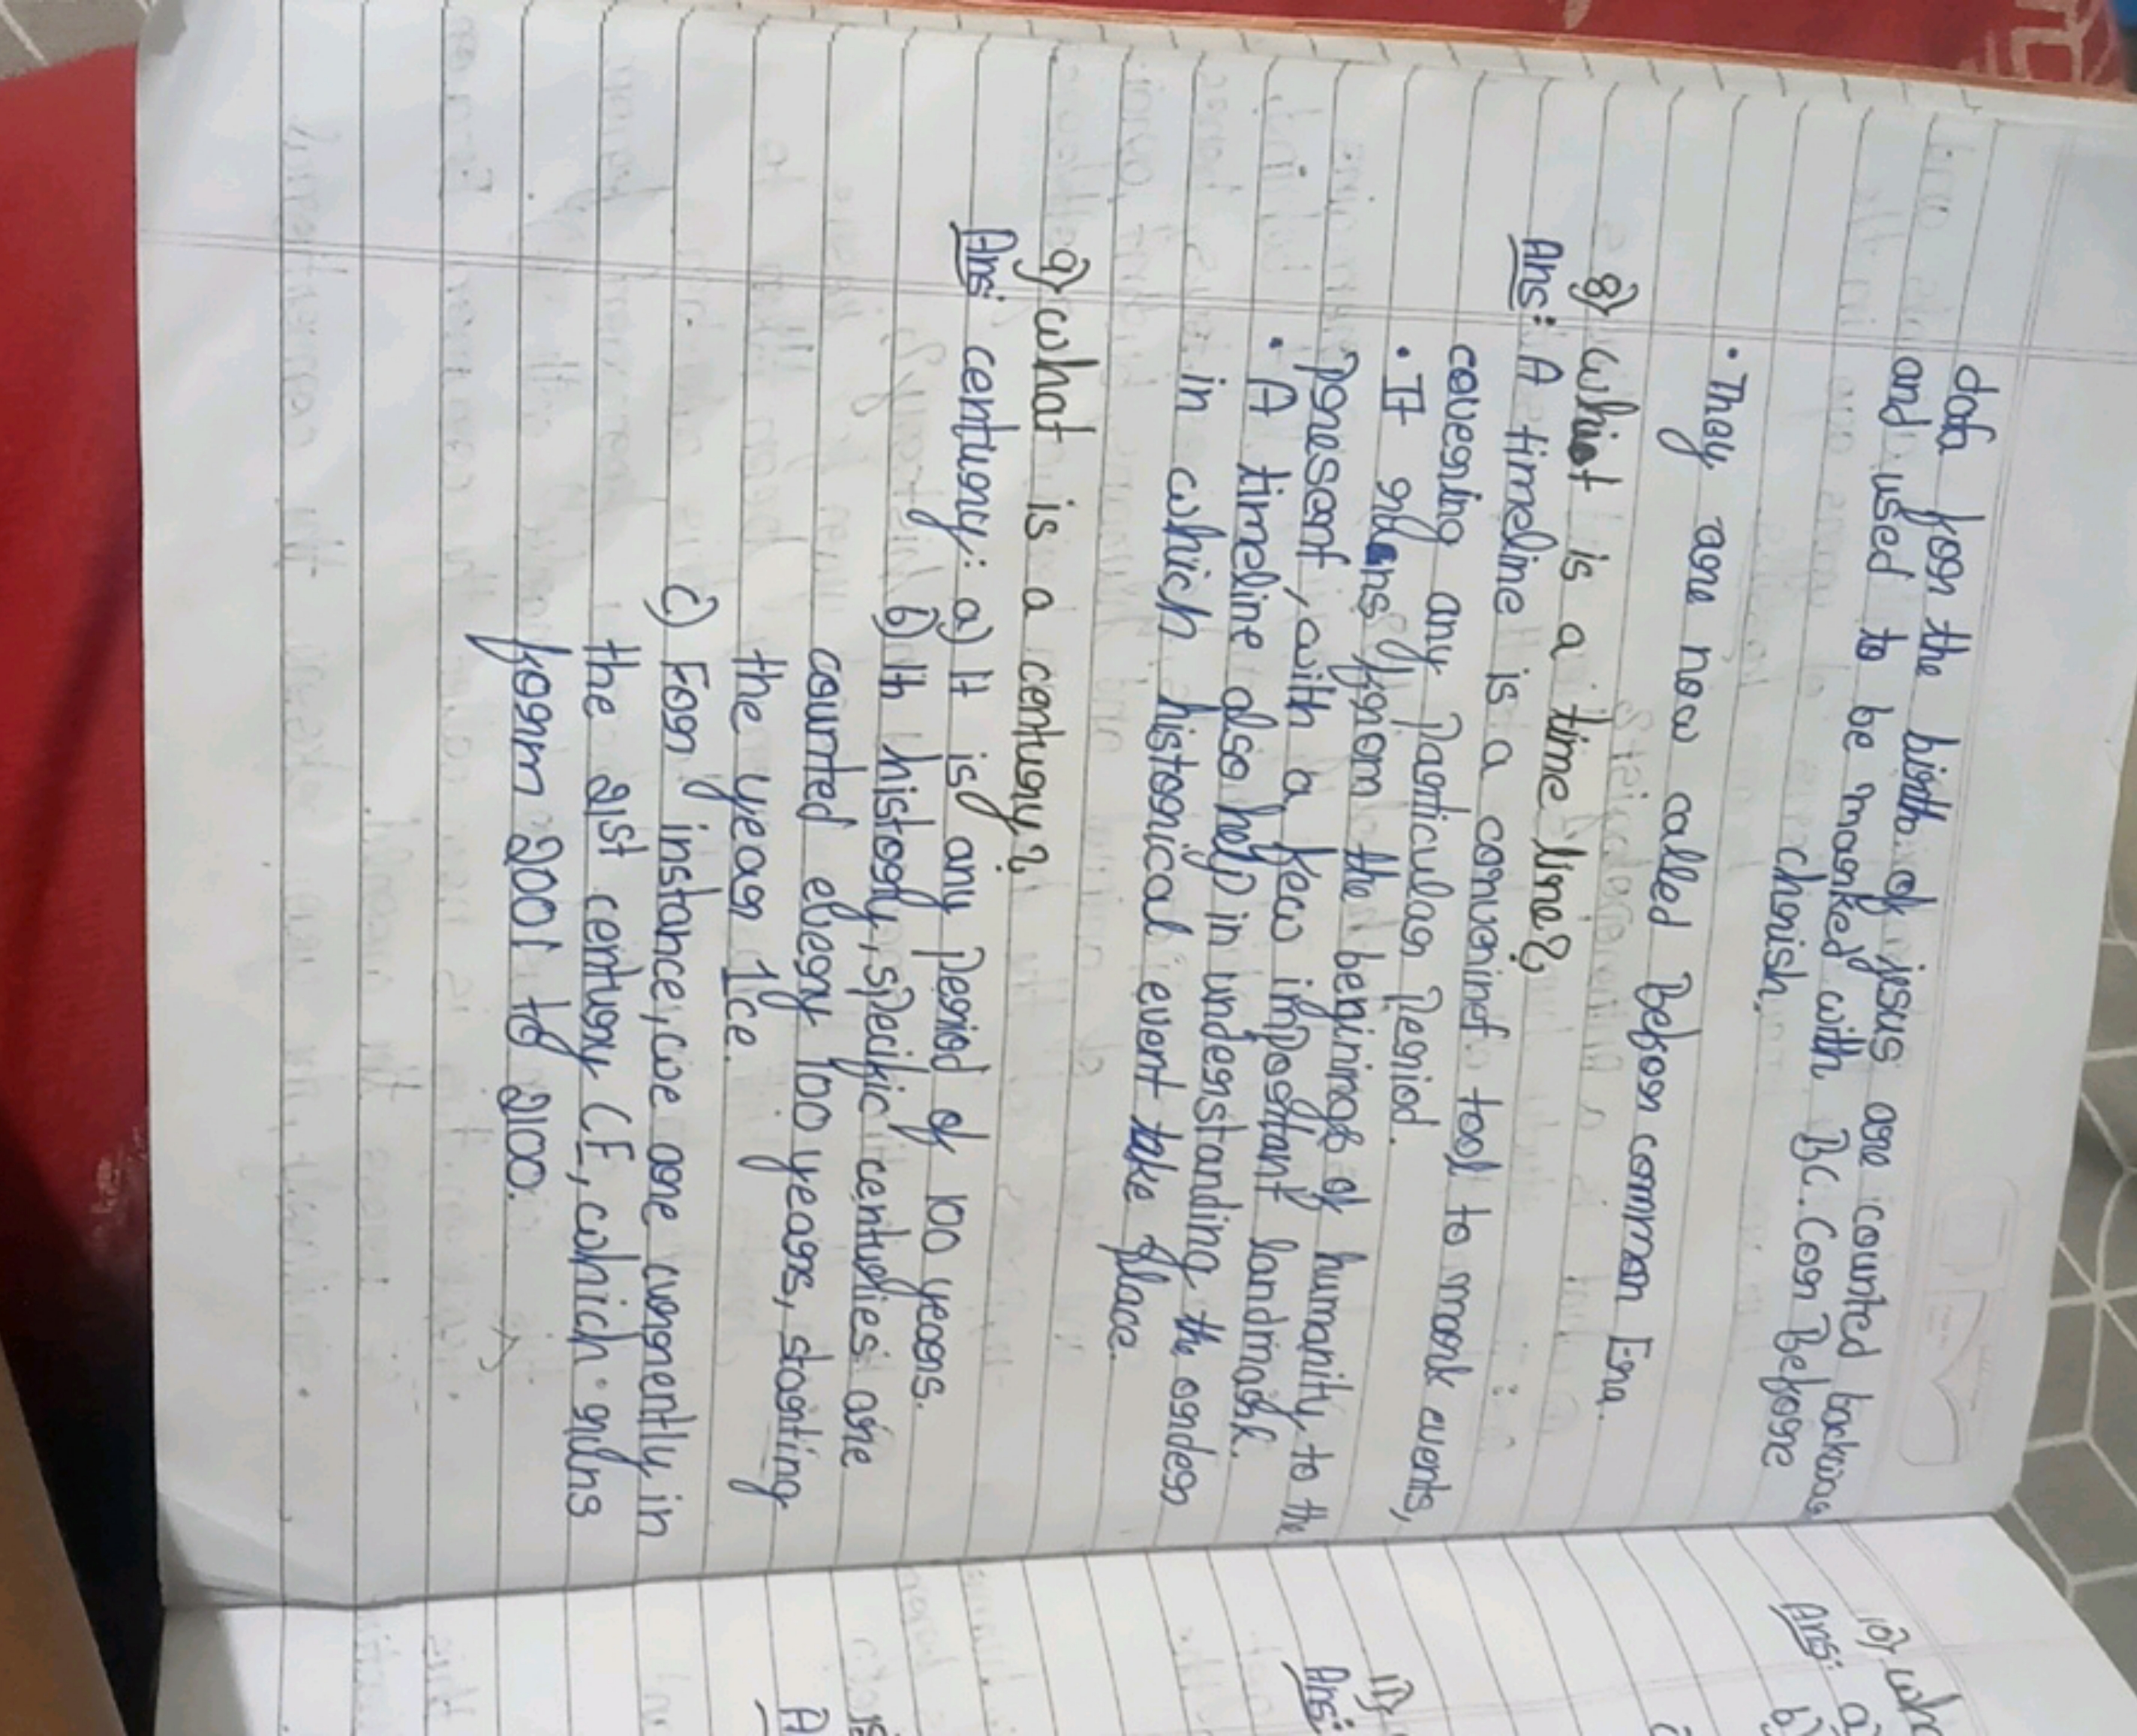 data for the birth of jesus are counted backwas
and used to be marked with BC. Cor Before
chirish.
• They are now called Befor common Era.
8) what is a time line?
Ans: A timeline is a conveninet tool to mark events,
covering any Particular Period.
• It runs from the beginings of humanity to the
Presesent, with a few important landmark.
• A timeline also help in understanding the order
in which historical event take place.
9) what is a century?
Ans: century: a) It is any Period of 100 years.
b) In history, specific centuries are
counted every 100 years, starting
the year 1ce.
c) For instance, we are currently in
the 21st century CE, which runs
form 2001 to 2100.
10) wha
Ans: a)
b)
11)
Ans:
A